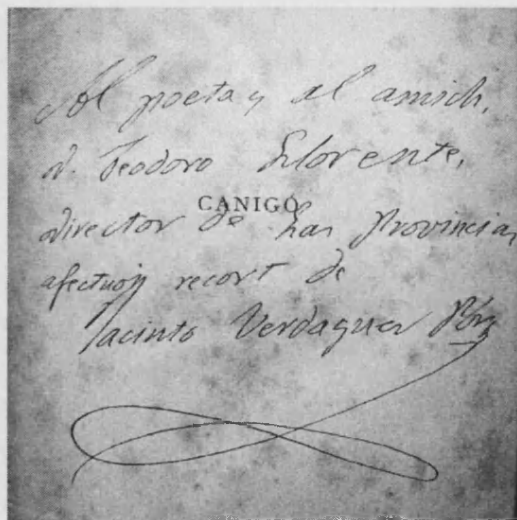 Al poeta y al amich,
D. Teodoro Llorente,
CANIGÓ
director de Las Provincias
afectuós recort de
Jacinto Verdaguer Pbre